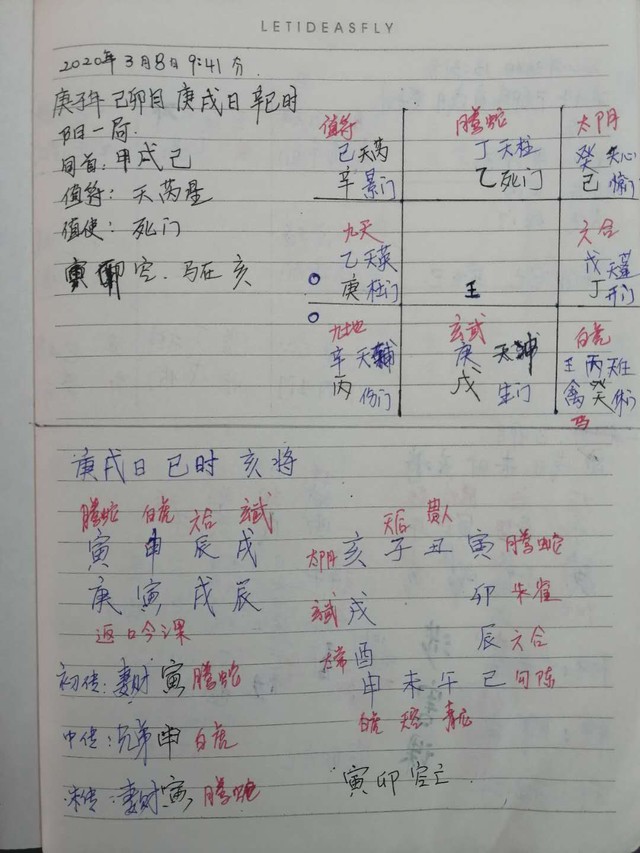 LETIDEASFLY
2020年3月8日 9:41分
庚子年 己卯月 庚戌日 辛巳时
阳一局.
旬首: 甲戌己
值符: 天芮星
值使: 死门
寅卯空. 马在亥
值符
己天芮
辛景门
腾蛇
丁天柱
乙死门
太阴
癸天心
己惊门
九天
乙天英
庚杜门
壬
六合
戊天蓬
丁开门
九地
辛天辅
丙伤门
玄武
庚
戊生门
白虎
壬丙天任
禽癸休门
马
庚戌日 巳时 亥将
腾蛇 白虎 六合 玄武
寅 申 辰 戌
庚 寅 戌 辰
返吟课
初传: 妻财寅 腾蛇
中传: 兄弟申 白虎
末传: 妻财寅 腾蛇
天后 贵人
太阴 亥 子 丑 寅 腾蛇
玄武 戌 卯 朱雀
太常 酉 辰 六合
申 未 午 巳 勾陈
白虎 天空 青龙
寅卯空亡